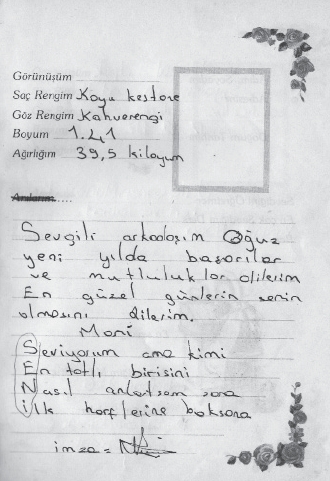 Görünüşüm
Saç Rengim Koyu kestane
Göz Rengim Kahverengi
Boyum 1.41
Ağırlığım 39,5 kiloyum
Anılarım.....
Sevgili arkadaşım Oğuz
yeni yılda başarılar
ve mutluluklar dilerim
En güzel günlerin senin
olmasını dilerim.
Mani
Seviyorum ama kimi
En tatlı birisini
Nasıl anlatsam sana
İlk harflerine baksana
imza =